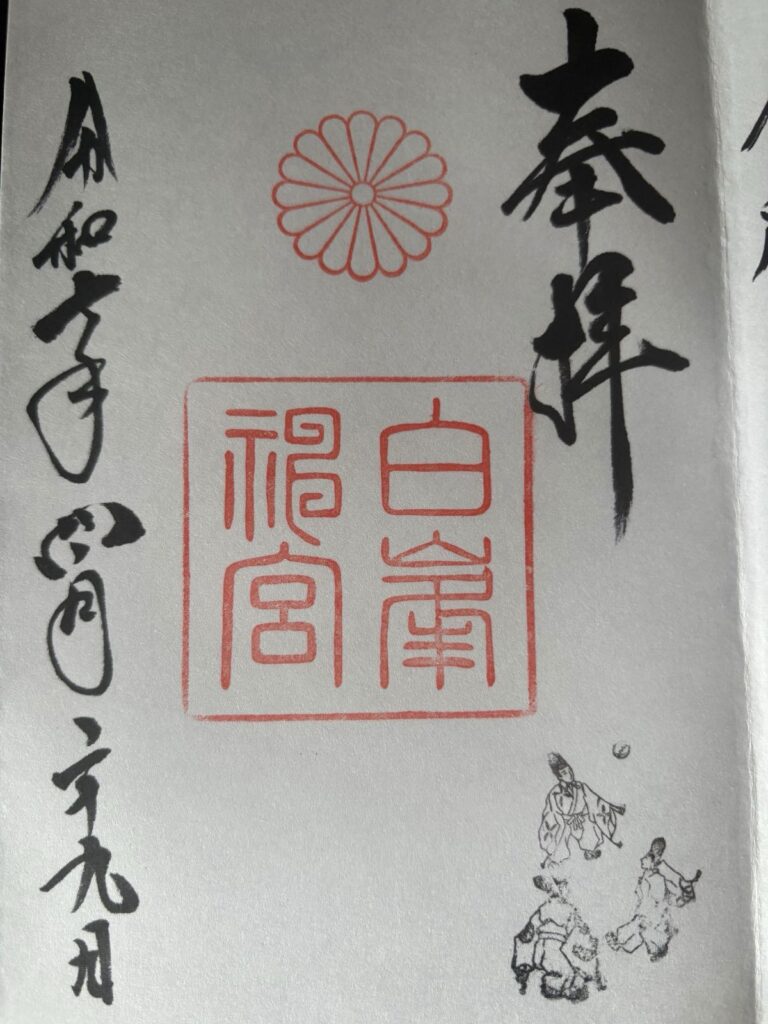 奉拝
白峯
神宮
令和七年四月二十九日